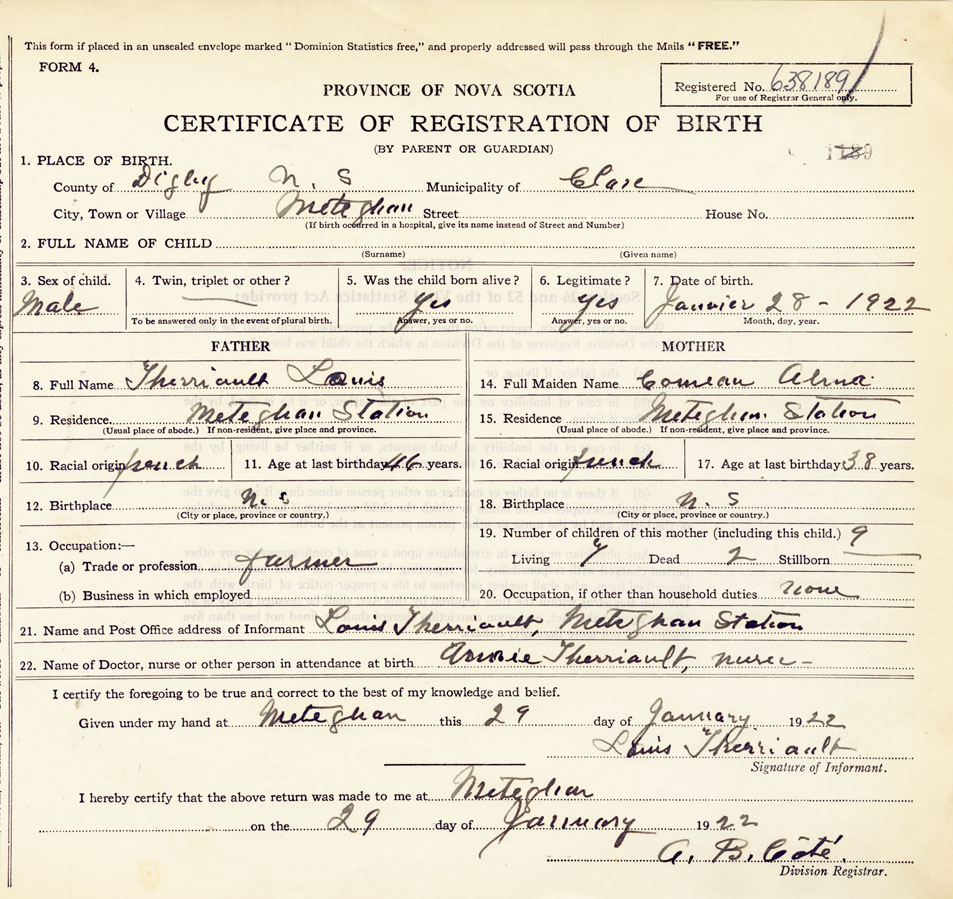 This form if placed in an unsealed envelope marked "Dominion Statistics free," and properly addressed will pass through the Mails "FREE."
FORM 4.
Registered No. 638189
For use of Registrar General only.
PROVINCE OF NOVA SCOTIA
CERTIFICATE OF REGISTRATION OF BIRTH
(BY PARENT OR GUARDIAN)
1. PLACE OF BIRTH.
County of Digby N. S Municipality of Clare
City, Town or Village Meteghan Street House No.
(If birth occurred in a hospital, give its name instead of Street and Number)
2. FULL NAME OF CHILD
(Surname) (Given name)
3. Sex of child. 4. Twin, triplet or other? 5. Was the child born alive? 6. Legitimate? 7. Date of birth.
Male Yes Yes Janvier 28 - 1922
To be answered only in the event of plural birth. Answer, yes or no. Answer, yes or no. Month, day, year.
FATHER MOTHER
8. Full Name Therriault Louis 14. Full Maiden Name Comeau Alma
9. Residence Meteghan Station 15. Residence Meteghan Station
(Usual place of abode.) If non-resident, give place and province. (Usual place of abode.) If non-resident, give place and province.
10. Racial origin french 11. Age at last birthday 46 years. 16. Racial origin french 17. Age at last birthday 38 years.
12. Birthplace N. S 18. Birthplace N. S
(City or place, province or country.) (City or place, province or country.)
13. Occupation:— 19. Number of children of this mother (including this child.) 9
(a) Trade or profession farmer Living 7 Dead 2 Stillborn
(b) Business in which employed 20. Occupation, if other than household duties none
21. Name and Post Office address of Informant Louis Therriault, Meteghan Station
22. Name of Doctor, nurse or other person in attendance at birth Annie Therriault, nurse -
I certify the foregoing to be true and correct to the best of my knowledge and belief.
Given under my hand at Meteghan this 29 day of January 1922
Louis Therriault
Signature of Informant.
I hereby certify that the above return was made to me at Meteghan
on the 29 day of January 1922
A. B. Côté.
Division Registrar.